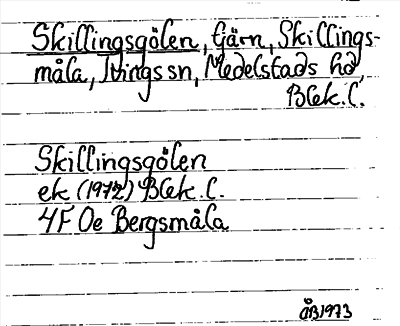 Skillingsgölen, tjärn, Skillings-
måla, Tvings sn, Medelstads hd,
Blek. l.
Skillingsgölen
ek (1972) Blek. l.
4F 0e Bergsmåla
ÅB 1973